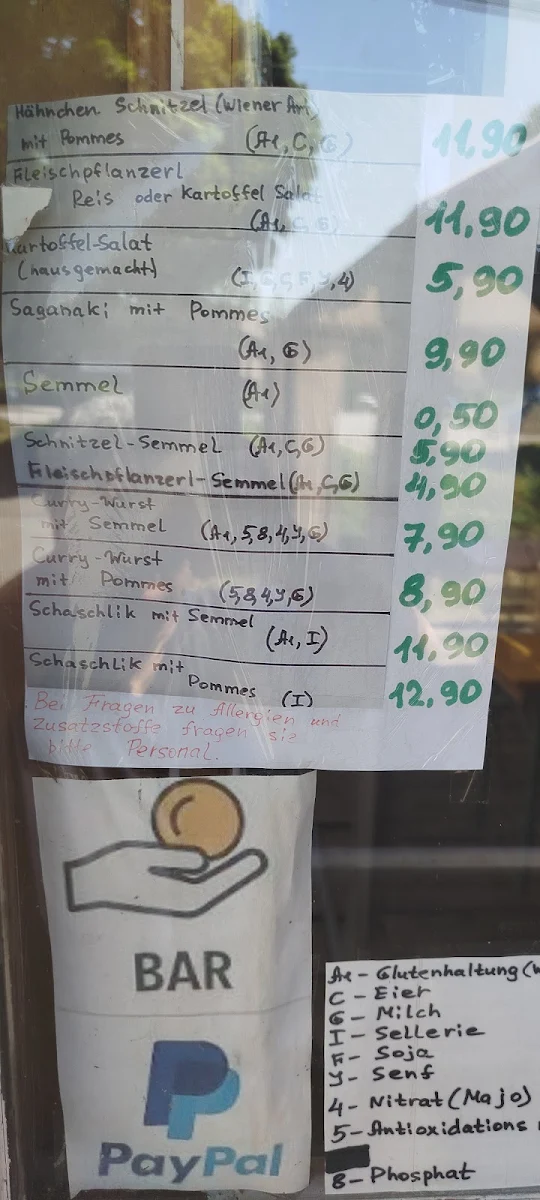 Hähnchen Schnitzel (Wiener Art)
mit Pommes (A1, C, G) 11,90
Fleischpflanzerl
Reis oder Kartoffel Salat
(A1, C, G) 11,90
Kartoffel-Salat
(hausgemacht) (I, G, C, F, Y, 4) 5,90
Saganaki mit Pommes
(A1, G) 9,90
Semmel (A1) 0,50
Schnitzel-Semmel (A1, C, G) 5,90
Fleischpflanzerl-Semmel (A1, C, G) 4,90
Curry-Wurst
mit Semmel (A1, 5, 8, 4, Y, G) 7,90
Curry-Wurst
mit Pommes (5, 8, 4, Y, G) 8,90
Schaschlik mit Semmel
(A1, I) 11,90
Schaschlik mit
Pommes (I) 12,90
Bei Fragen zu Allergien und
Zusatzstoffe fragen sie
bitte Personal.
BAR
PayPal
A1 - Glutenhaltung (
C - Eier
G - Milch
I - Sellerie
F - Soja
Y - Senf
4 - Nitrat (Majo)
5 - Antioxidations
8 - Phosphat